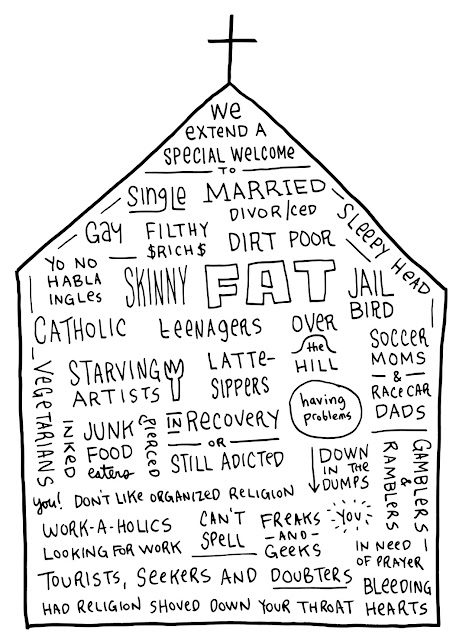 We
EXTEND A
SPECIAL WELCOME
TO
Single MARRIED
DIVOR/CED
Gay FILTHY
$RICH$
DIRT POOR
SLEEPY HEAD
YO NO
HABLA
INGLes
SKINNY
FAT
JAIL
BIRD
CATHOLIC
teenagers
OVER
the
HILL
SOCCER
MOMS
&
RACE CAR
DADS
VEGETARIANS
STARVING
ARTISTS
LATTE-
SIPPERS
having
problems
INKED
JUNK
FOOD
eaters
PIERCED
IN RECOVERY
OR
STILL ADICTED
DOWN
IN THE
DUMPS
GAMBLERS
&
RAMBLERS
you! DON'T LIKE ORGANIZED RELIGION
WORK-A-HOLICS
LOOKING FOR WORK
CAN'T
SPELL
FREAKS
AND
GEEKS
YOU
IN NEED
OF PRAYER
TOURISTS, SEEKERS AND DOUBTERS
BLEEDING
HEARTS
HAD RELIGION SHOVED DOWN YOUR THROAT